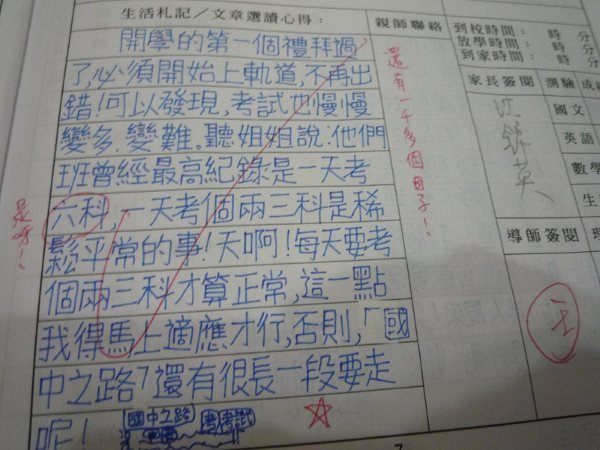 生活札記／文章選讀心得：
開學的第一個禮拜過
了,必須開始上軌道,不再出
錯!可以發現,考試也慢慢
變多.變難。聽姐姐說:他們
班曾經最高紀錄是一天考
六科,一天考個兩三科是稀
鬆平常的事!天啊!每天要考
個兩三科才算正常,這一點
我得馬上適應才行,否則,「國
中之路」還有很長一段要走
呢!
國中之路
考考試
是呀!
還有一千多個日子!
親師聯絡
到校時間： 時 分
放學時間： 時 分
到家時間： 時 分
家長簽閱
測驗
國文
英語
數學
導師簽閱